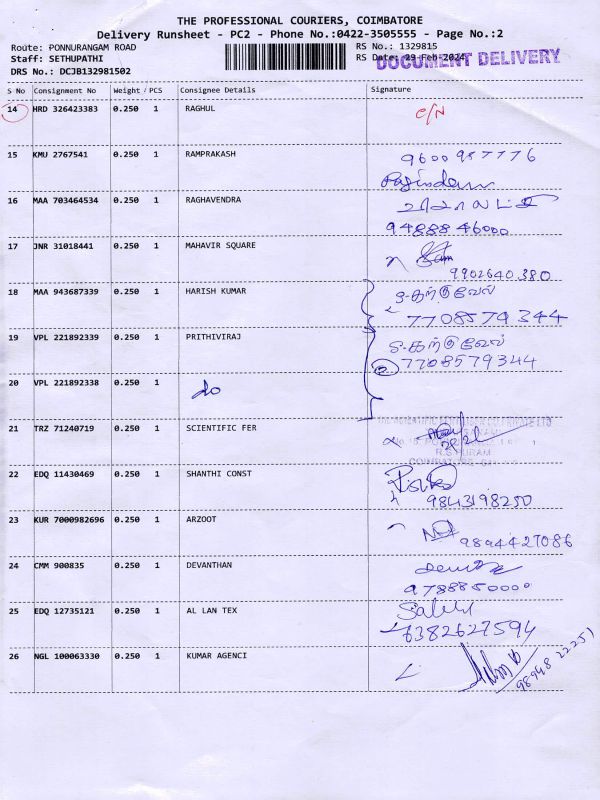 THE PROFESSIONAL COURIERS, COIMBATORE
Delivery Runsheet - PC2 - Phone No.:0422-3505555 - Page No.:2
Route: PONNURANGAM ROAD RS No.: 1329815
Staff: SETHUPATHI RS Date: 29-Feb-2024
DOCUMENT DELIVERY
DRS No.: DCJB132981502
S No Consignment No Weight / PCS Consignee Details Signature
14 HRD 326423383 0.250 1 RAGHUL
15 KMU 2767541 0.250 1 RAMPRAKASH 9600957776
16 MAA 703464534 0.250 1 RAGHAVENDRA
9488846000
17 JNR 31018441 0.250 1 MAHAVIR SQUARE
9902640380
18 MAA 943687339 0.250 1 HARISH KUMAR
7708579344
19 VPL 221892339 0.250 1 PRITHIVIRAJ
7708579344
20 VPL 221892338 0.250 1 do
21 TRZ 71240719 0.250 1 SCIENTIFIC FER
R.S.PURAM
22 EDQ 11430469 0.250 1 SHANTHI CONST
9843198250
23 KUR 7000982696 0.250 1 ARZOOT
9894427086
24 CMM 900835 0.250 1 DEVANTHAN
9788850000
25 EDQ 12735121 0.250 1 AL LAN TEX
6382627594
26 NGL 100063330 0.250 1 KUMAR AGENCI